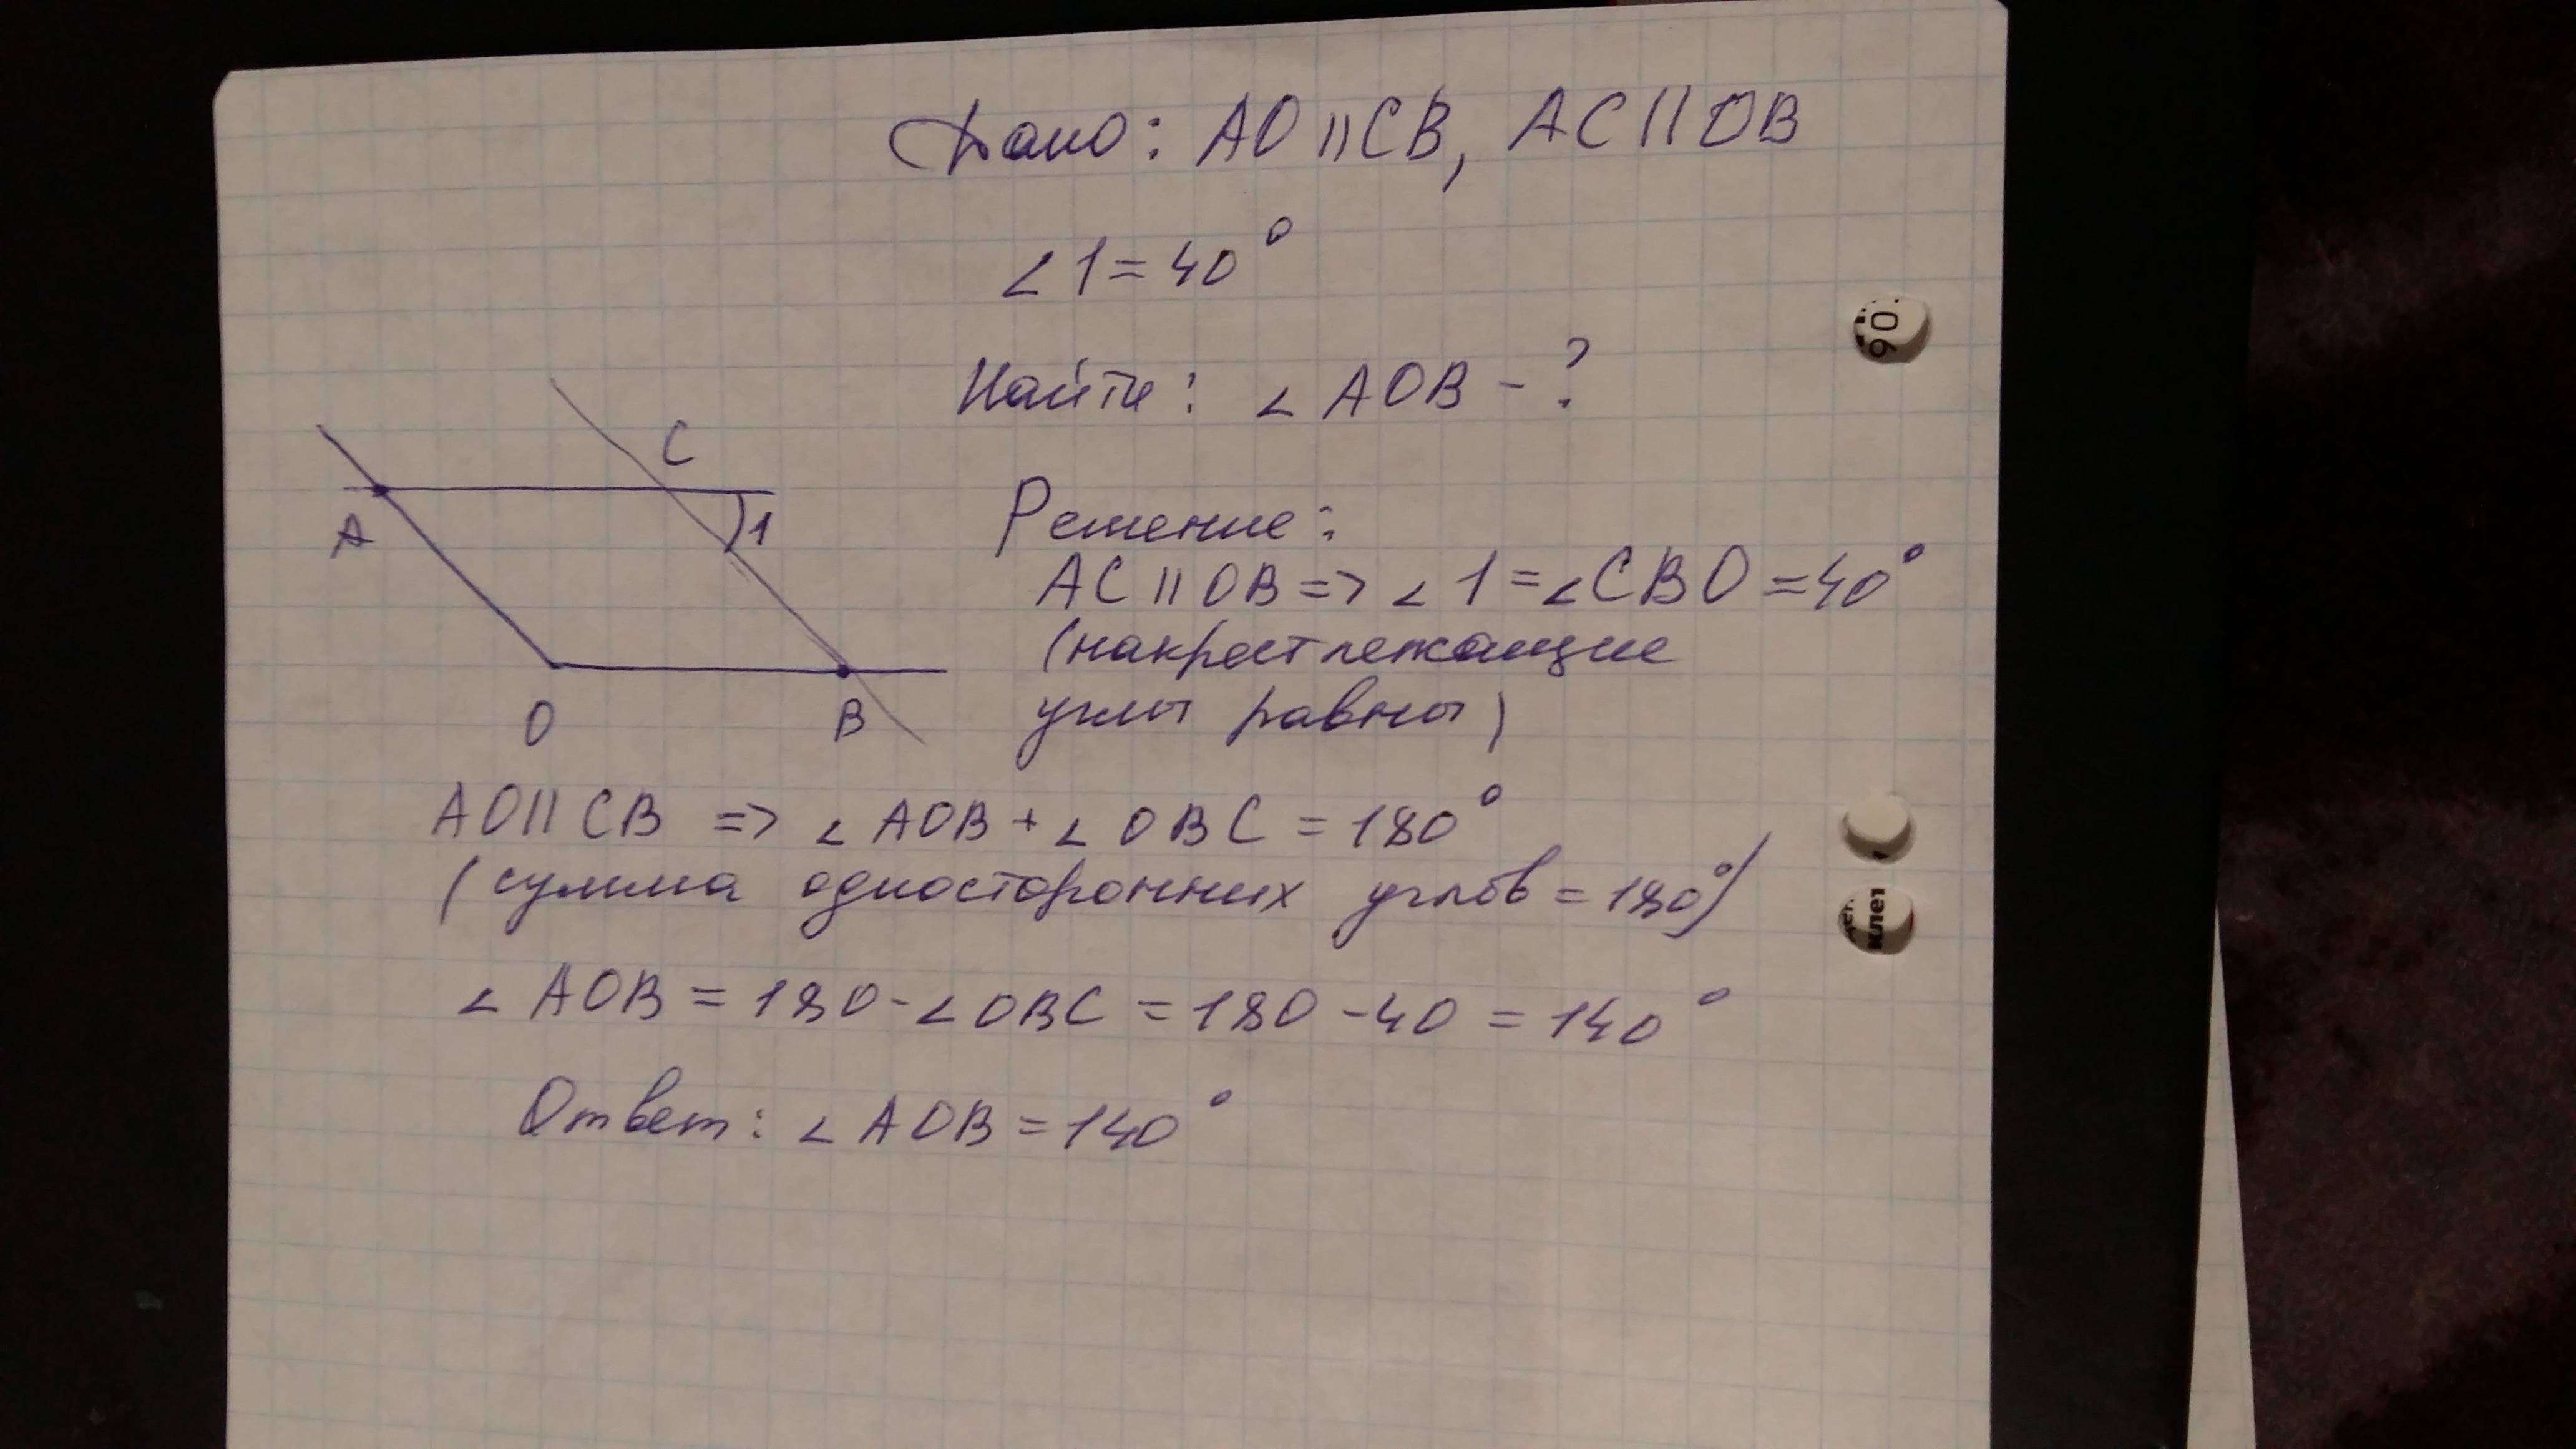 Дано: AO || CB, AC || OB
∠1 = 40°
Найти: ∠AOB - ?
C
A
1
O
B
Решение:
AC || OB => ∠1 = ∠CBO = 40°
(накрест лежащие
углы равны)
AO || CB => ∠AOB + ∠OBC = 180°
(сумма односторонних углов = 180°)
∠AOB = 180 - ∠OBC = 180 - 40 = 140°
Ответ: ∠AOB = 140°
90.
клет